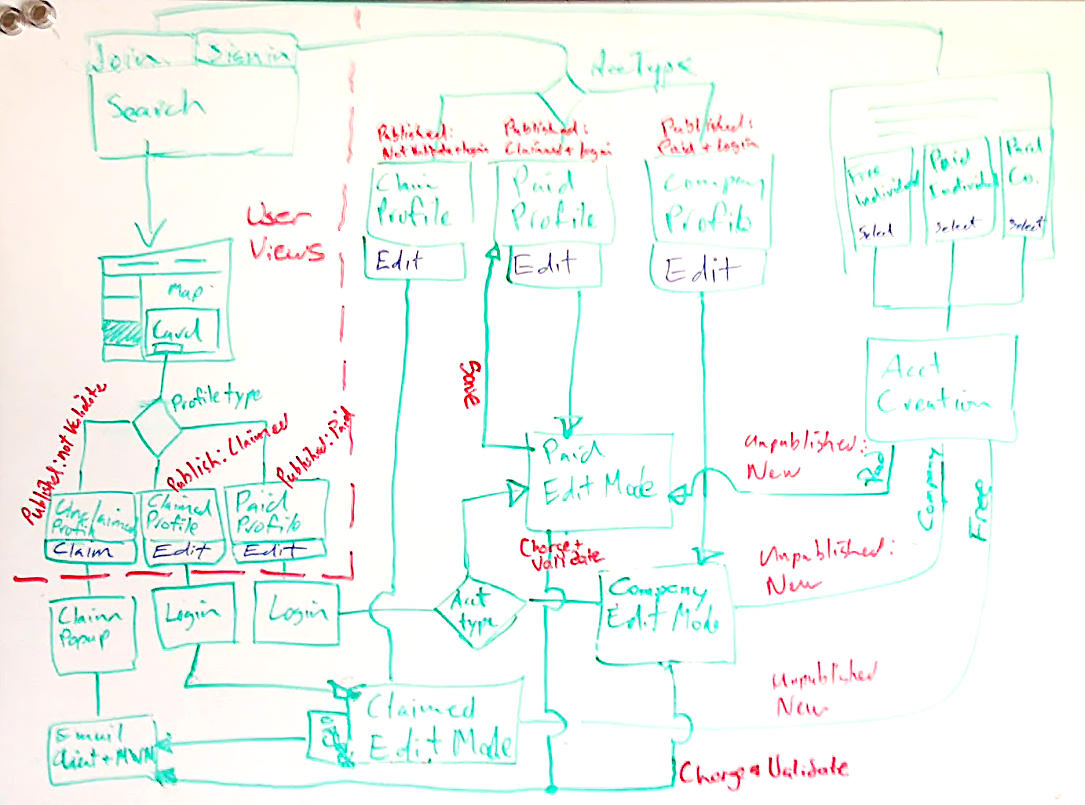 Join
Signin
Search
AccType
Published:
Not Validate+login
Published:
Claimed + login
Published:
Paid + Login
Claim
Profile
Edit
Paid
Profile
Edit
Company
Profile
Edit
Free
Individual
Select
Paid
Individual
Select
Paid
Co.
Select
User
Views
Map
Card
Profile type
Published: not Validate
Publish: Claimed
Published: Paid
Save
Acct
Creation
Unpublished:
New
Paid
Company
Free
Paid
Edit Mode
Unclaimed
Profile
Claim
Claimed
Profile
Edit
Paid
Profile
Edit
Charge +
Validate
Unpublished:
New
Claim
Popup
Login
Login
Acct
type
Company
Edit Mode
Unpublished
New
Claimed
Edit Mode
Email
Client + MWM
Charge + Validate